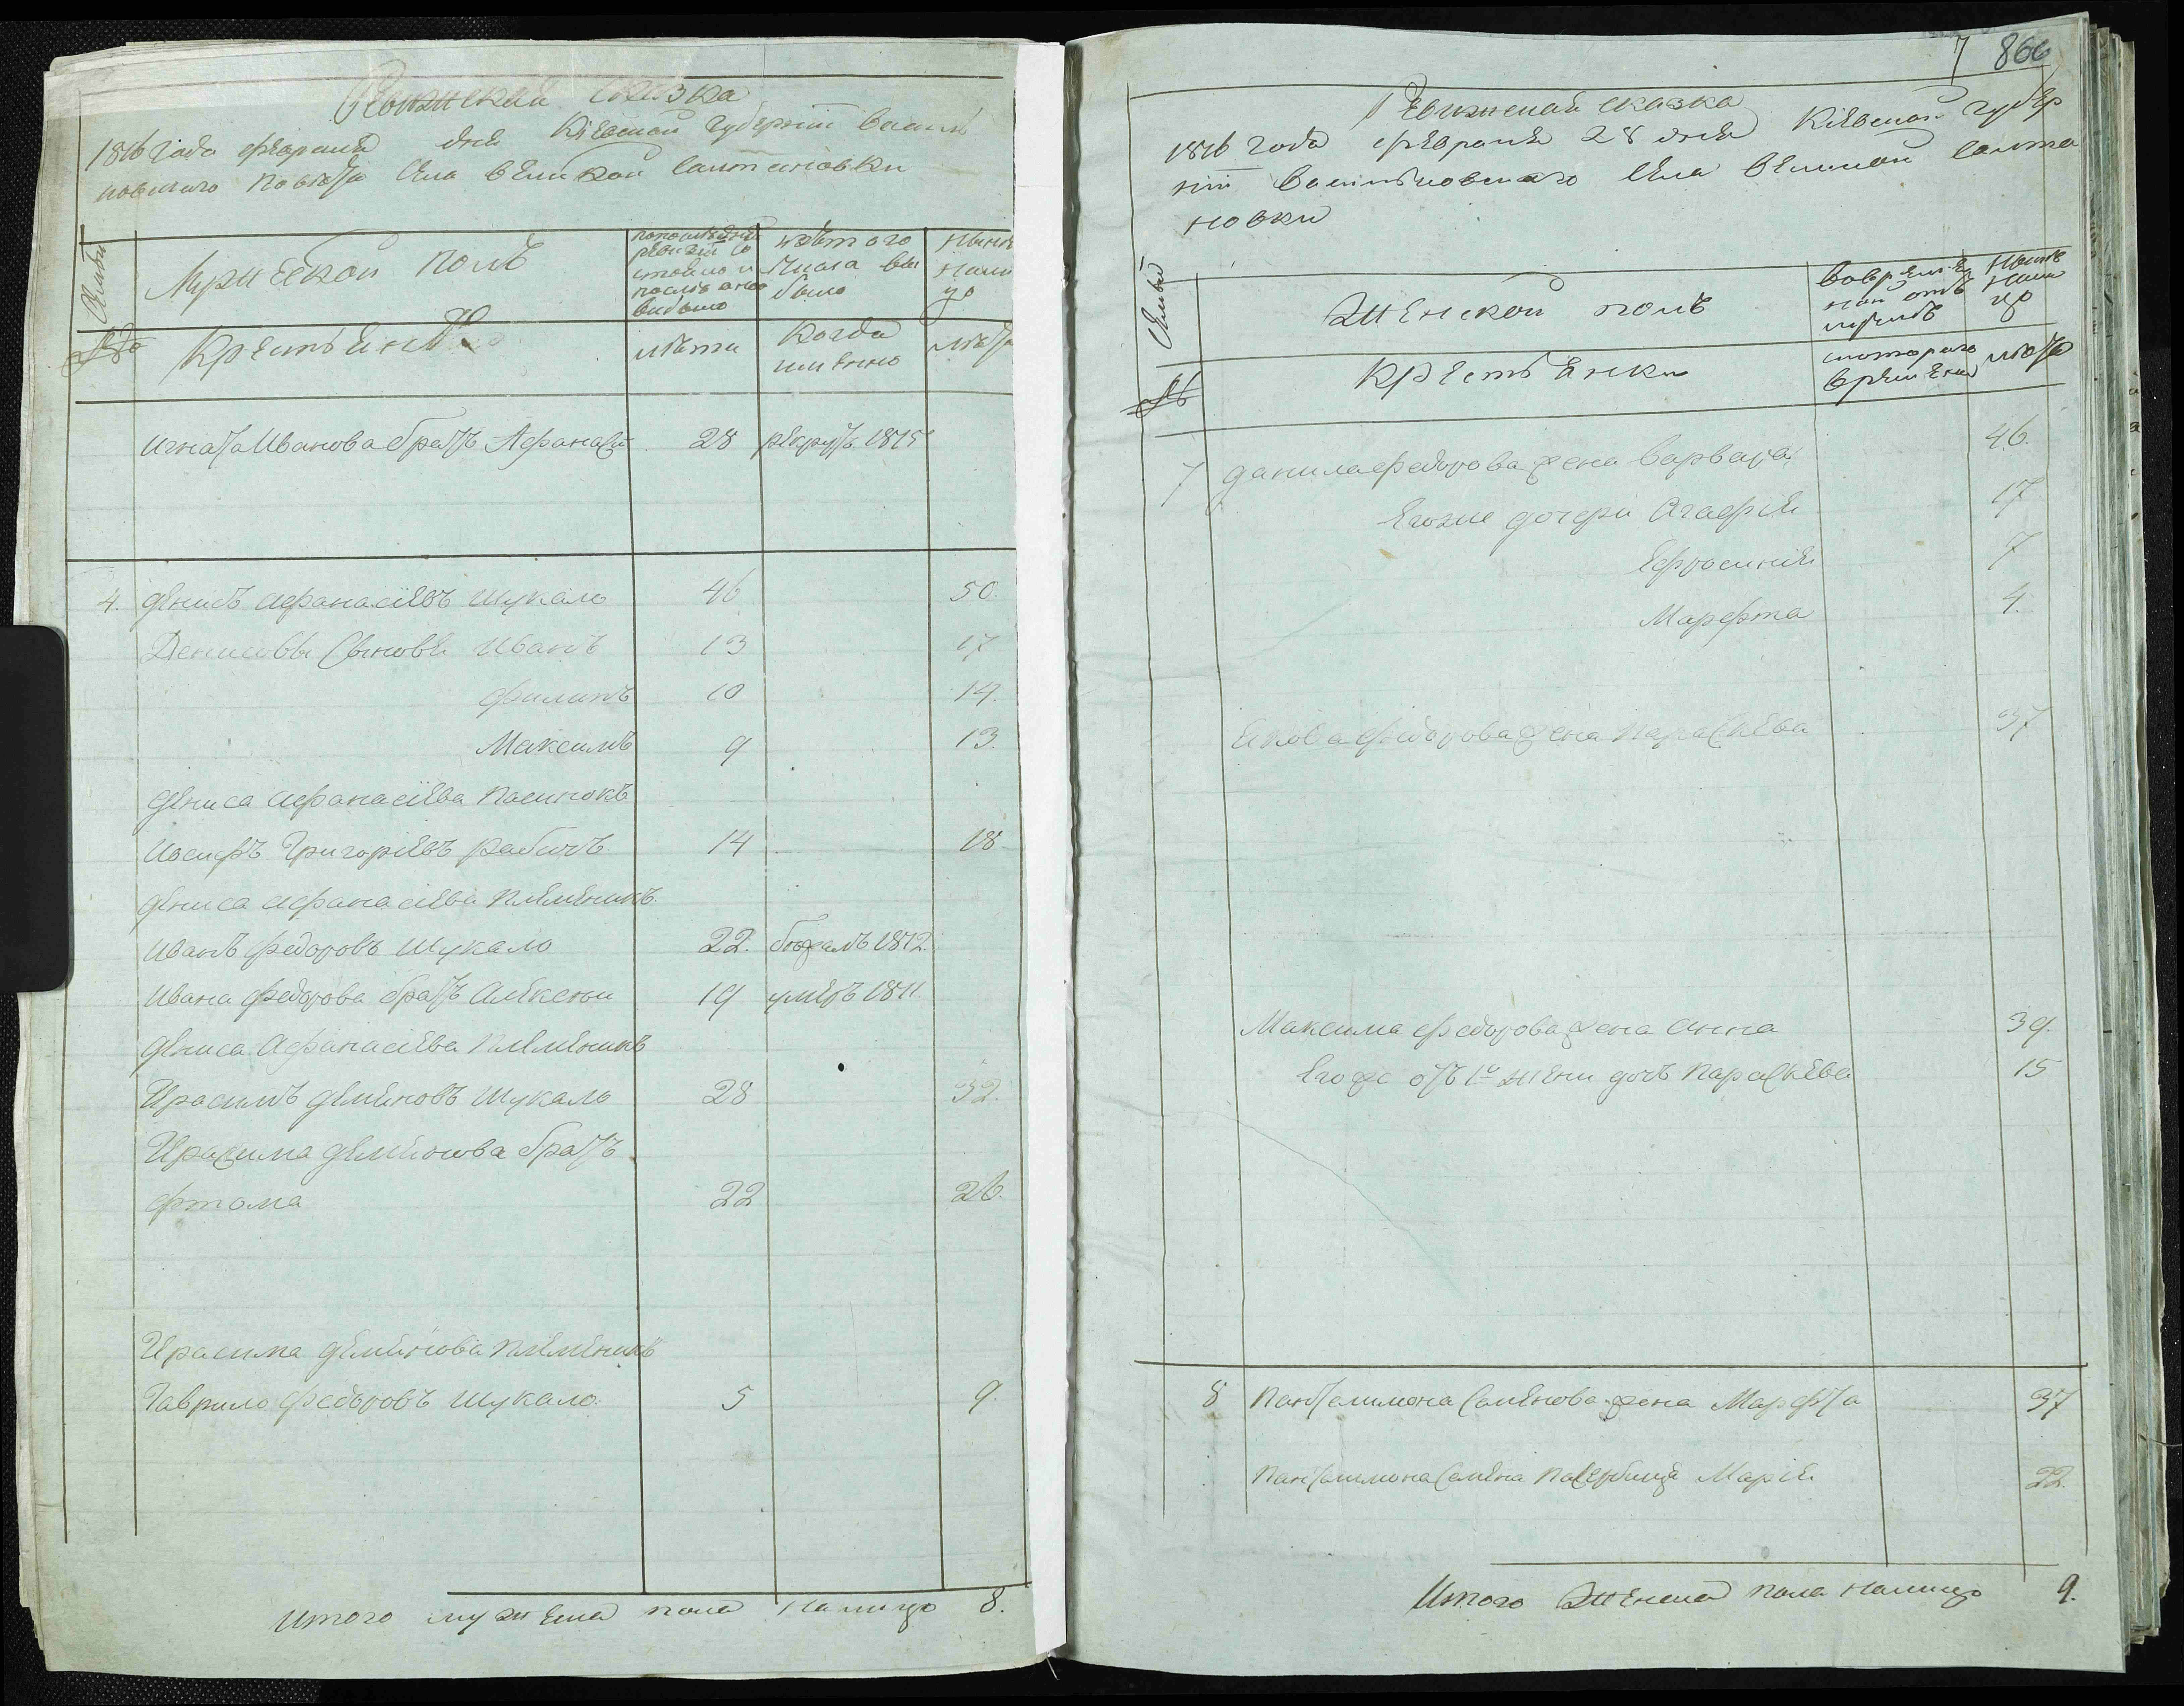 Ревижская сказка
1816 Года февраля дня Кіевской Губерніи Василь
ковского Повета Села великой Салтановки
Семьи
Мужеской полъ
попоследней ревизіи состояло и после оной выбыло
изътого числа выбыло
ныне налицо
№
Крестьяне
лета
когда именно
лета
игната Иванова братъ Афанасей 28 рекрутъ 1815
4. денисъ афанасіевъ Шукало 46 50.
Денисовы Сыновя иванъ 13 17
филипъ 10 14.
Максимъ 9 13.
дениса афанасіева пасинокъ
иосифъ Григоріевъ рабчъ 14 18
дениса афанасіева племеникъ
иванъ федоровъ Шукало 22. бежалъ 1812.
ивана федорова братъ Алексей 19 умеръ 1811
дениса Афанасіева племеникъ
Ирасимъ демяновъ Шукало 28 32.
Ирасима демянова братъ
фтома 22 26.
Ирасима демянова племеникъ
Гаврило федоровъ Шукало 5 9.
Итого мужеска пола налицо 8.
7 866
Ревижская сказка
1816 Года февраля 28 дня Кіевской Губер
ніи Васильковского Села великой Салта
новки
Семьи
Женской полъ
вовременной отлучке
Ныне налицо
№
Крестьянки
скоторого времени
лета
7 данила федорова жена варвара 46.
Егоже дочери Агафія 17
Ефросинія 7
Марфта 4.
якова федорова жена параскева 37
Максима федорова жена анна 39.
Егоже отъ 1й жены дочъ параскева 15
8 пантелимона Семенова жена Марфта 37
пантелимона Семена Марія 22.
Итого Женска пола налицо 9.